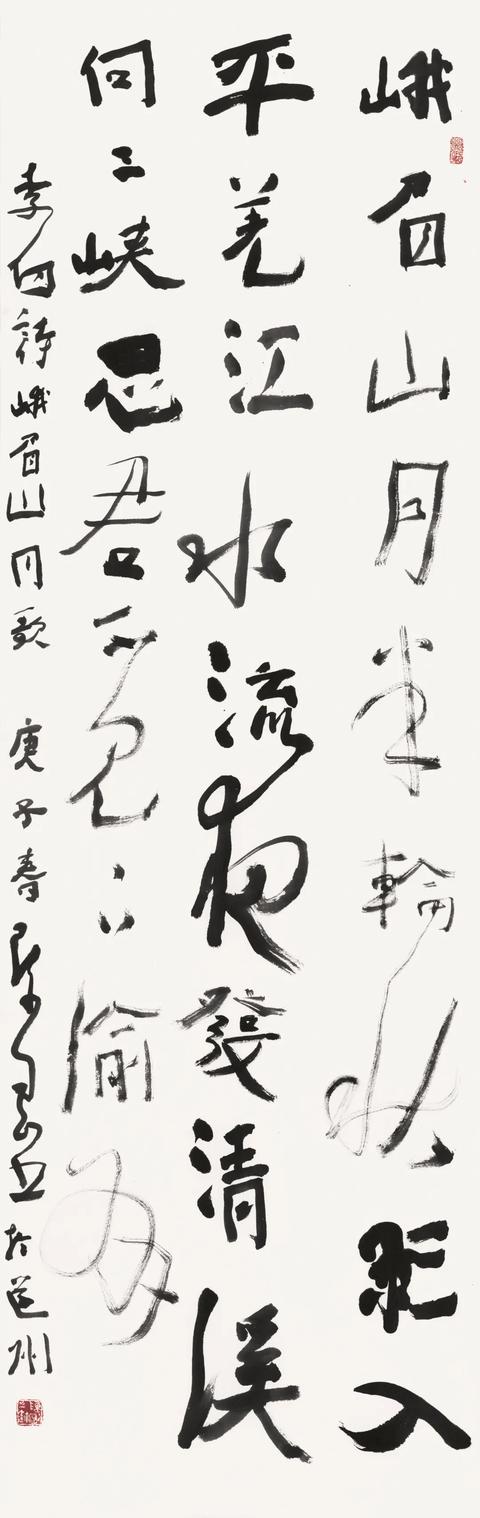 峨眉山月半輪秋影入
平羌江水流夜發清溪
向三峡思君不見下渝州
李白詩峨眉山月歌 庚子春